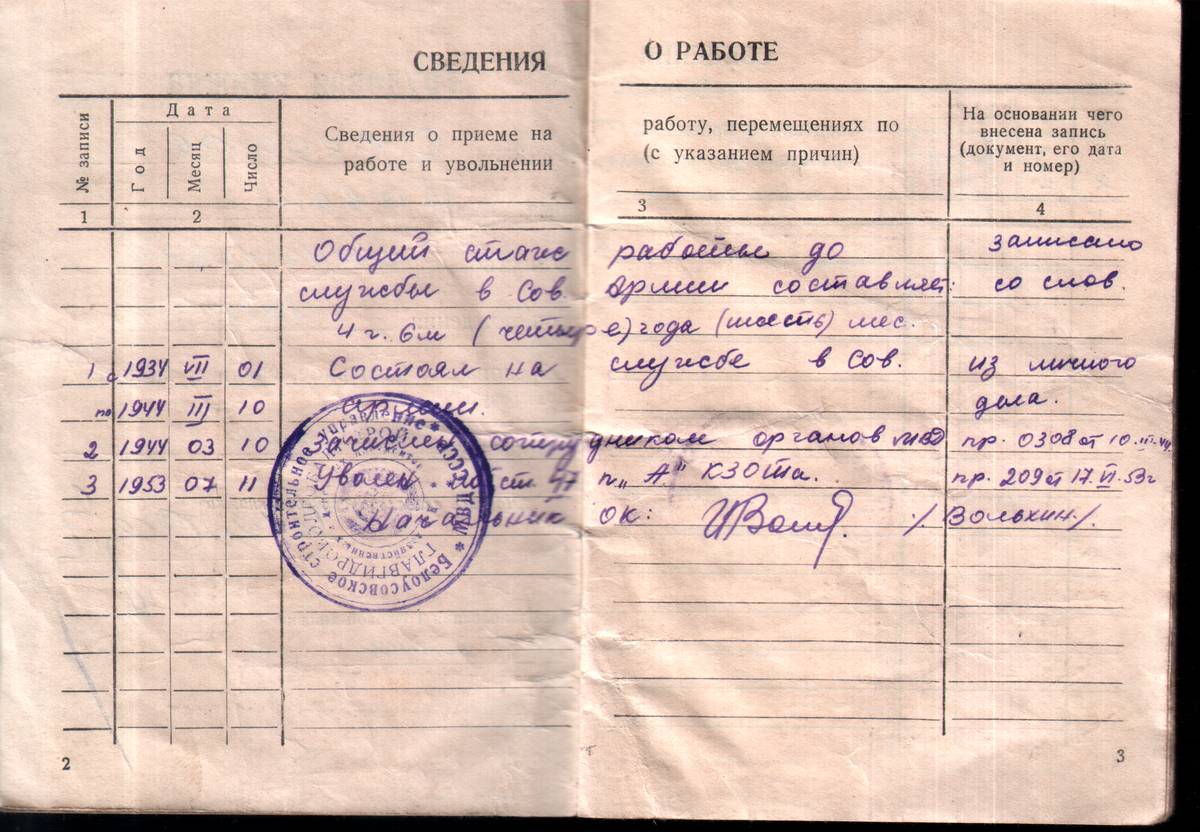 СВЕДЕНИЯ О РАБОТЕ
№ записи
Дата
Год
Месяц
Число
Сведения о приеме на работу, перемещениях по
работе и увольнении (с указанием причин)
На основании чего
внесена запись
(документ, его дата
и номер)
1 2 3 4
Общий стаж работы до записано
службы в Сов. Армии составляет: со слов.
4 г. 6 м (четыре) года (шесть) мес.
1 с 1934 VII 01 Состоял на службе в Сов. из личного
по 1944 III 10 Армии. дела.
2 1944 03 10 Зачислен сотрудником органов МВД пр. 0308 от 10.III.44.
3 1953 07 11 Уволен по ст. 47 п „А" КЗОТа. пр. 209 от 17.VI.53г
Начальник ОК: /Вольхин/.
МВД СССР * Белоусовское строительное управление *
ГЛАВГИДРОВОЛГОДОНСТРОЙ
2
3